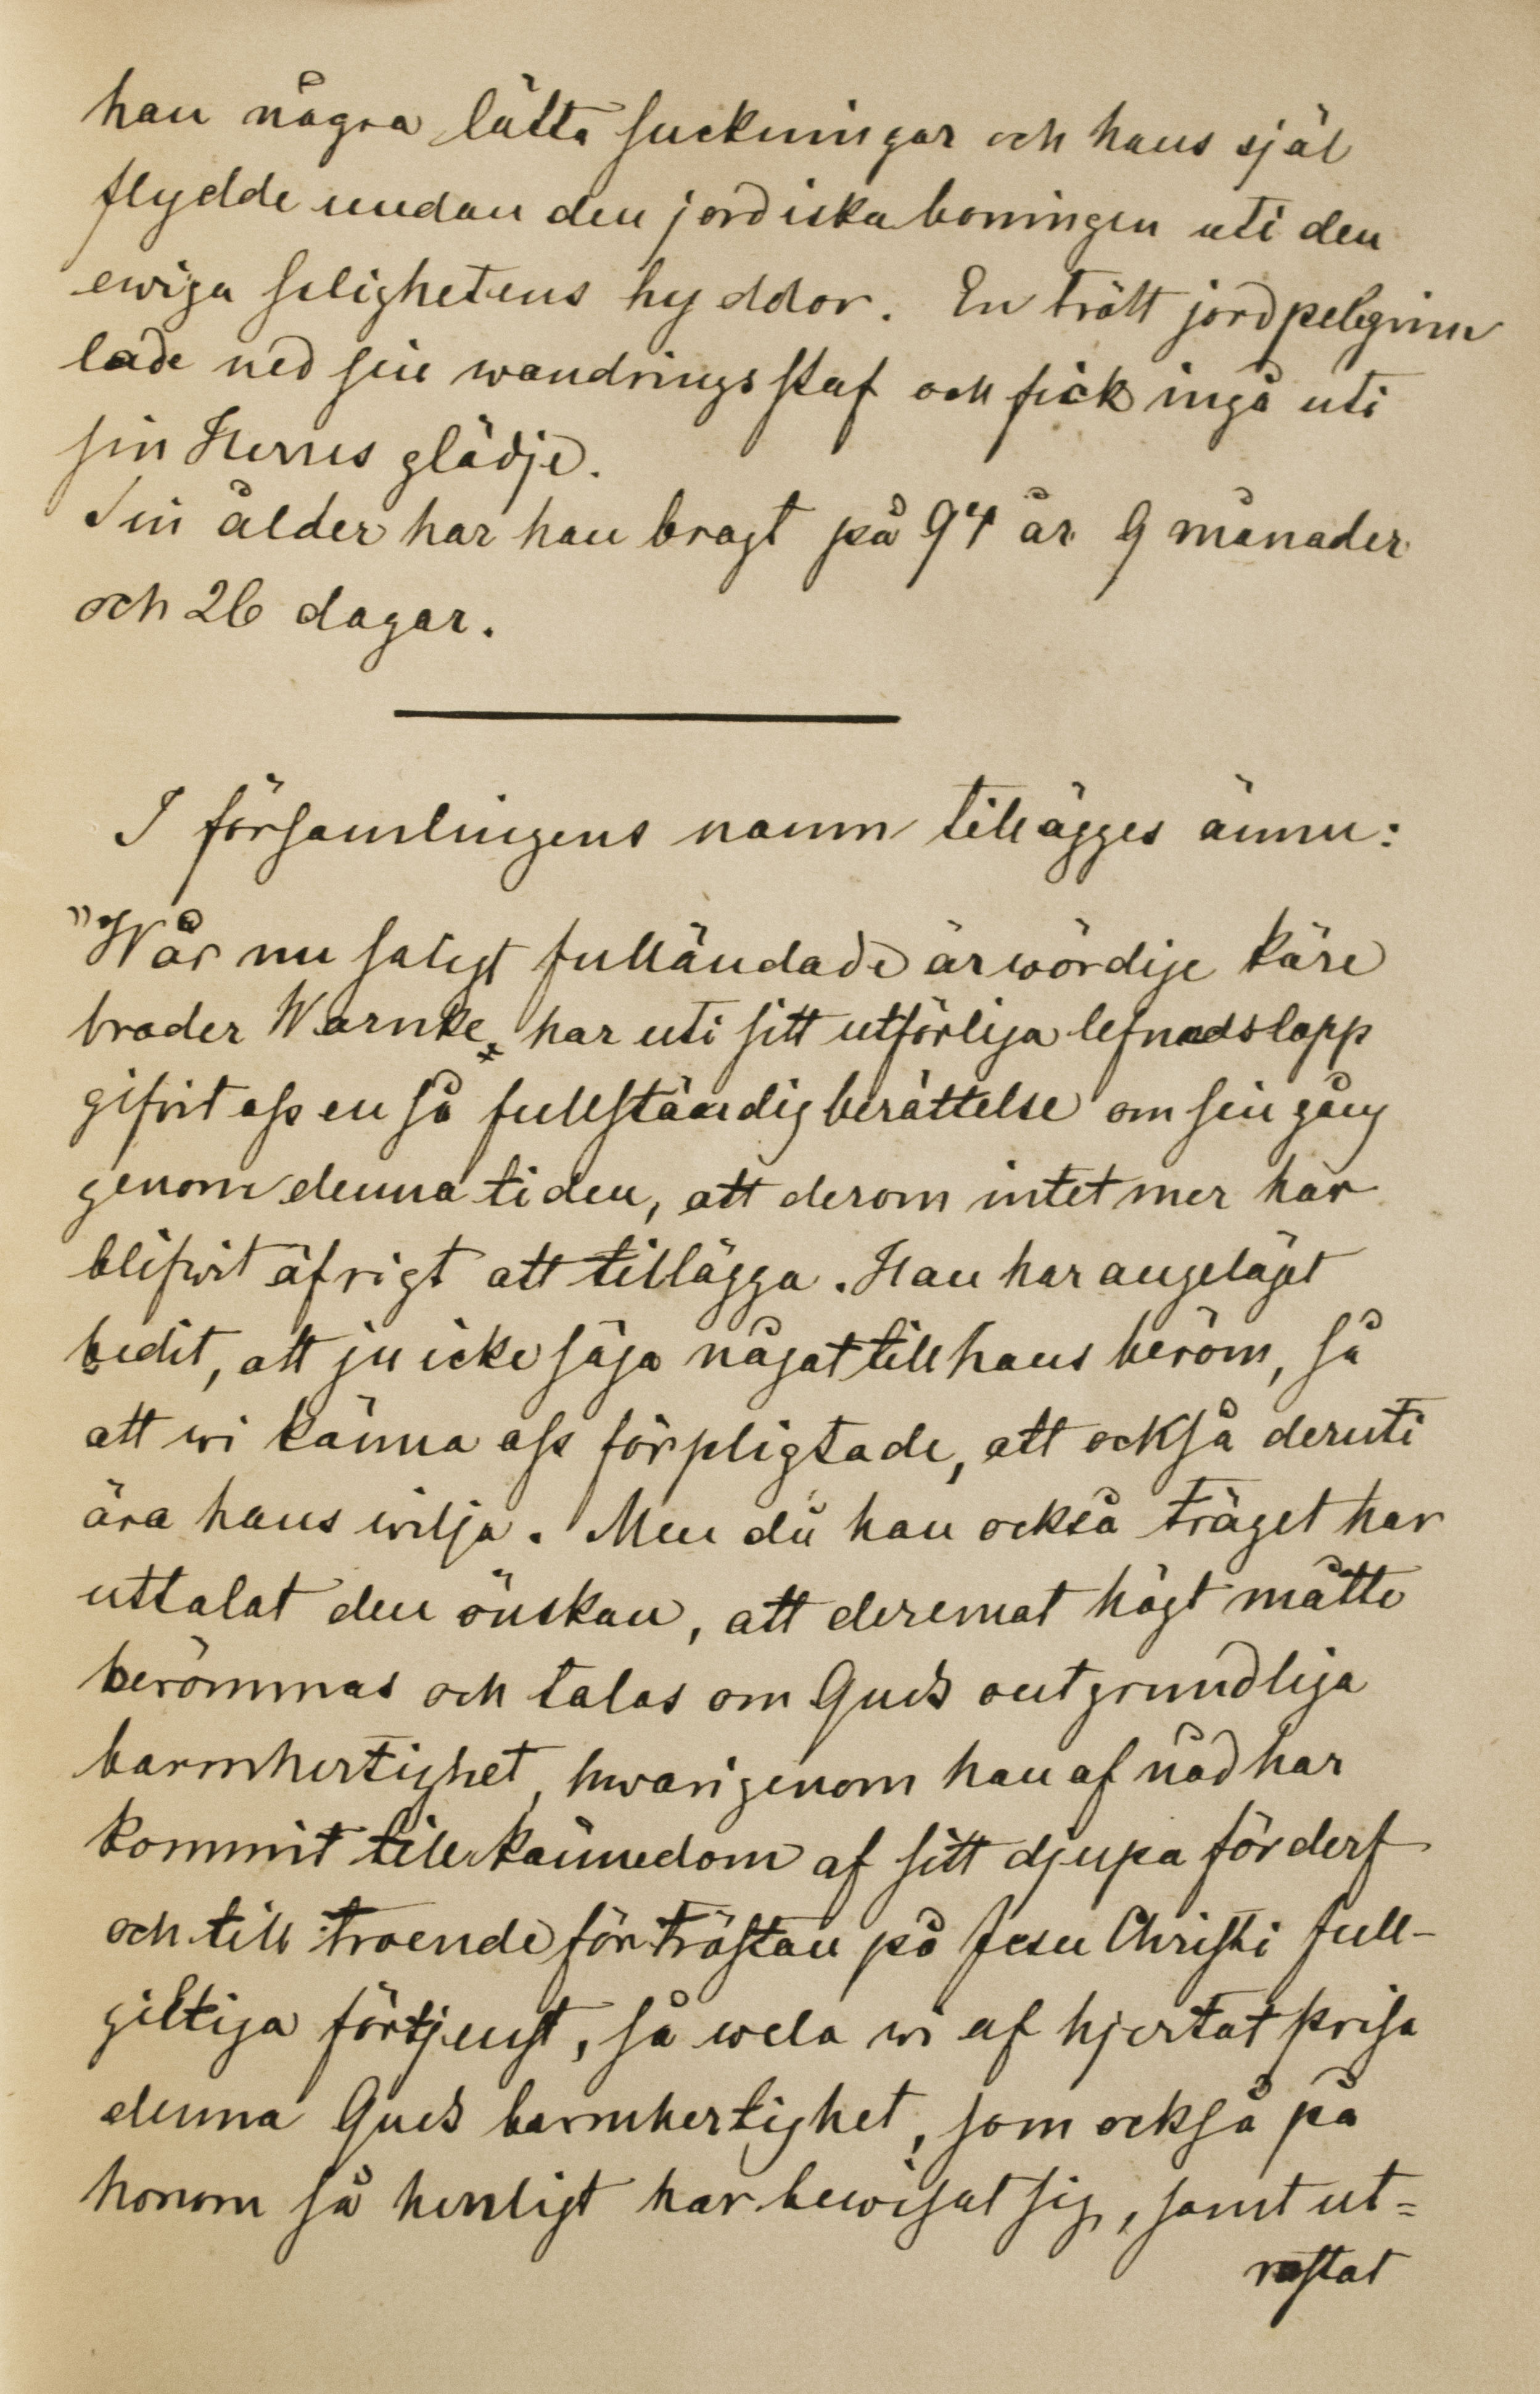 han några lätta suckningar och hans själ
flydde undan den jordiska boningen uti den
ewiga salighetens hyddor. En trött jordpelegrim
lade ned sin wandringsstaf och fick ingå uti
sin Herres glädje.
Sin ålder har han bragt på 94 år 9 månader
och 26 dagar.
I församlingens namn tillägges ännu:
"Wår nu saligt fulländade ärwördige käre
broder Warnke har uti sitt utförliga lefnadslopp
gifvit oss en så fullständig berättelse om sin gång
genom denna tiden, att derom intet mer har
blifwit öfrigt att tillägga. Han har angeläget
bedit, att ju icke säga något till hans beröm, så
att wi känna oss förpligtade, att också deruti
ära hans wilja. Men då han också träget har
uttalat den önskan, att deremot högt måtte
berömmas och talas om Guds outgrundliga
barmhertighet, hwarigenom han af nåd har
kommit till kännedom af sitt djupa förderf
och till troende förtröstan på Jesu Christi full-
giltiga förtjenst, så wela wi af hjertat prisa
denna Guds barmhertighet, som också på
honom så herrligt har bewisat sig, samt ut=
rustat